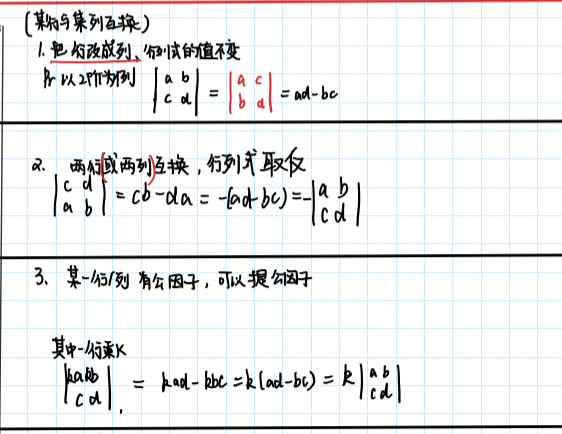 (某行与某列互换)
1. 把行改成列、行列式的值不变
以2阶为例 |a b; c d| = |a c; b d| = ad-bc
2. 两行(或两列)互换,行列式取反
|c d; a b| = cb-da = -(ad-bc) = -|a b; c d|
3. 某一行/列 有公因子,可以提公因子
其中一行乘K
|ka kb; c d| = kad-kbc = k(ad-bc) = k|a b; c d|